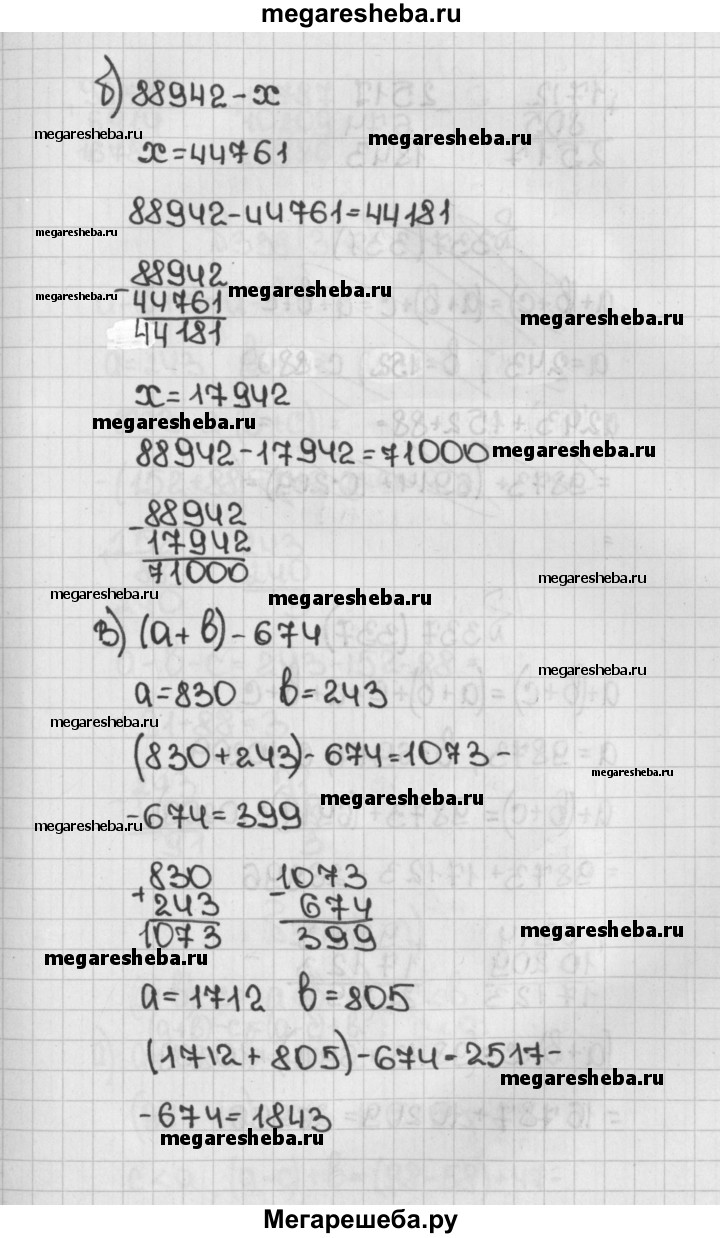 megaresheba.ru
б) 88942 - x
megaresheba.ru megaresheba.ru
x = 44761
88942 - 44761 = 44181
megaresheba.ru
- 88942
megaresheba.ru 44761 megaresheba.ru
44181 megaresheba.ru
x = 17942
megaresheba.ru
88942 - 17942 = 71000 megaresheba.ru
- 88942
17942
71000 megaresheba.ru
megaresheba.ru megaresheba.ru
в) (a + b) - 674
megaresheba.ru
a = 830 b = 243
megaresheba.ru
(830 + 243) - 674 = 1073 -
megaresheba.ru
megaresheba.ru
- 674 = 399
megaresheba.ru
+ 830 - 1073
243 674
1073 399 megaresheba.ru
megaresheba.ru
a = 1712 b = 805
(1712 + 805) - 674 = 2517 -
megaresheba.ru
- 674 = 1843
megaresheba.ru
Мегарешеба.ру